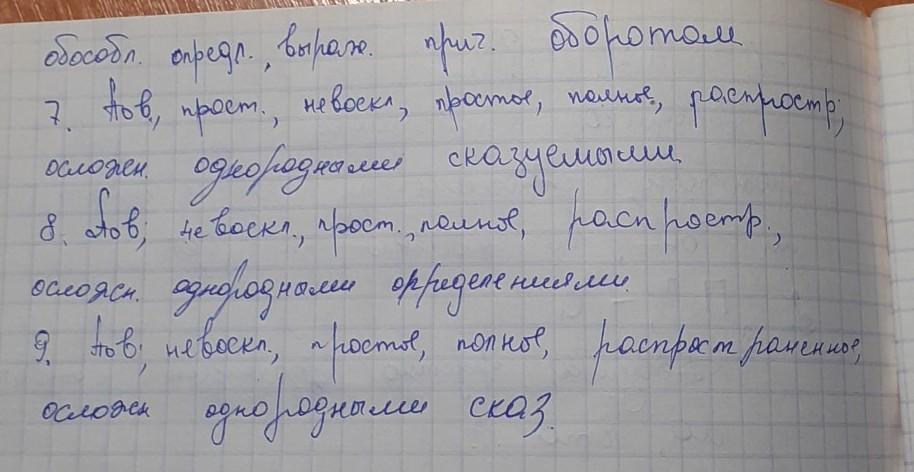 обособл. опредл., выраж. прич. оборотом
7. Пов, прост., невоскл, простое, полное, распростр;
осложн. однородными сказуемыми.
8. Пов; невоскл., прост., полное, распростр.,
осложн. однородными определениями.
9. Пов; невоскл., простое, полное, распространенное,
осложн однородными сказ.